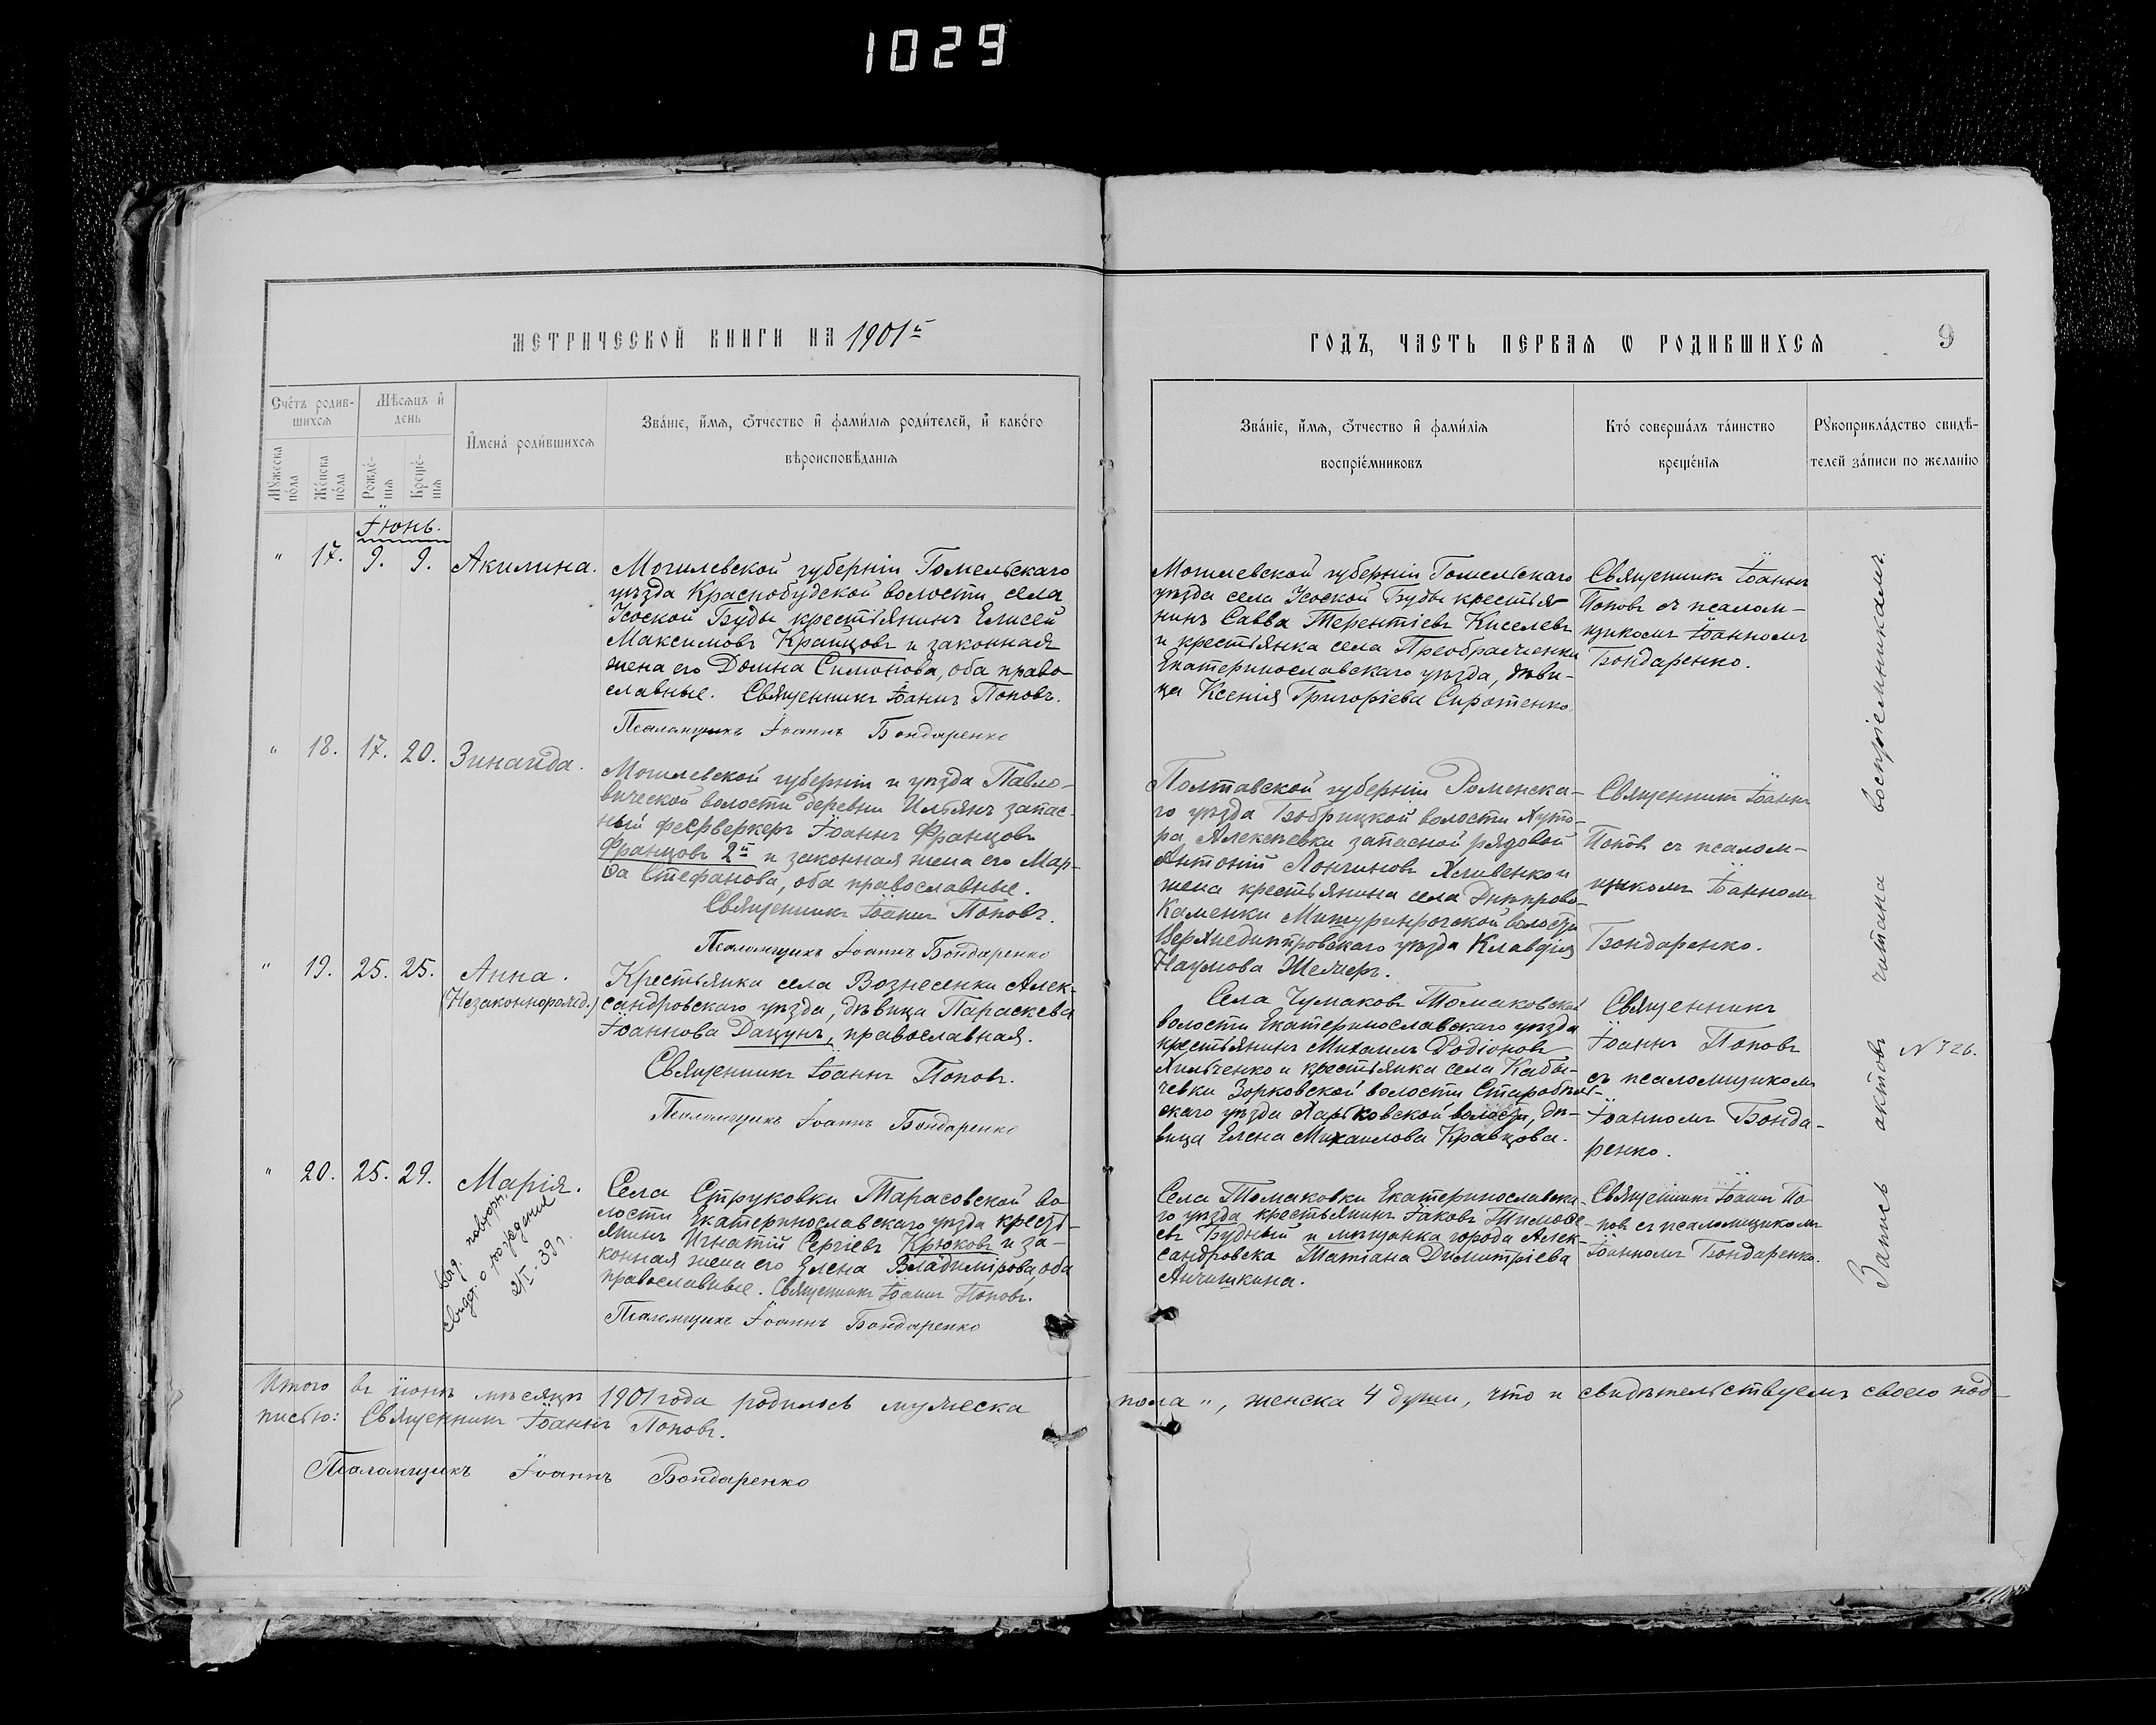 1029
МЕТРИЧЕСКОЙ КНИГИ НА 1901й
ГОДЪ, ЧАСТЬ ПЕРВАЯ Ѡ РОДИВШИХСЯ
9
Счетъ родив-
шихся
Мужеска
пола
Женска
пола
Мѣсяцъ и
день
Рожде-
нія
Креще-
нія
Имена родившихся
Званіе, имя, отчество и фамилія родителей, и какого
вѣроисповѣданія
Званіе, имя, отчество и фамилія
воспріемниковъ
Кто совершалъ таинство
крещенія
Рукоприкладство свидѣ-
телей записи по желанію
Іюнь.
" 17. 9. 9. Акилина.
Могилевской губерніи Гомельскаго
уѣзда Краснобудской волости села
Усоской Буды крестьянинъ Елисей
Максимовъ Кравцовъ и законная
жена его Домна Симонова, оба право-
славные. Священникъ Іоаннъ Поповъ.
Псаломщикъ Іоаннъ Бондаренко
Могилевской губерніи Гомельскаго
уѣзда села Усоской Буды крестья-
нинъ Савва Терентіевъ Киселевъ
и крестьянка села Преображенки
Екатеринославскаго уѣзда, дѣви-
ца Ксенія Григоріева Сиротенко
Священникъ Іоаннъ
Поповъ съ псалом-
щикомъ Іоанномъ
Бондаренко.
" 18. 17. 20. Зинаида.
Могилевской губерніи и уѣзда Павло-
вической волости деревни Ильянъ запас-
ный феерверкеръ Іоаннъ Францовъ
Францовъ 2й и законная жена его Мар-
ѳа Стефанова, оба православные.
Священникъ Іоаннъ Поповъ.
Псаломщикъ Іоаннъ Бондаренко
Полтавской губерніи Роменска-
го уѣзда Бобрицкой волости хуто-
ра Алексѣевки запасной рядовой
Антоній Лонгиновъ Хливенко и
жена крестьянина села Днѣпрово-
Каменки Мишуринрогской волости
Верхнеднѣпровскаго уѣзда Клавдія
Наумова
Священникъ Іоаннъ
Поповъ съ псалом-
щикомъ Іоанномъ
Бондаренко.
" 19. 25. 25. Анна.
(Незаконнорожд.)
Крестьянка села Вознесенки Алек-
сандровскаго уѣзда, дѣвица Параскева
Іоаннова Дацунъ, православная.
Священникъ Іоаннъ Поповъ.
Псаломщикъ Іоаннъ Бондаренко
Села Чумаковъ Томаковской
волости Екатеринославскаго уѣзда
крестьянинъ Михаилъ Родіоновъ
Хильченко и крестьянка села Кабы-
чевки Зорковской волости Старобѣль-
скаго уѣзда Харьковской волости, дѣ-
вица Елена Михаилова Кравцова.
Священникъ
Іоаннъ Поповъ
съ псаломщикомъ
Іоанномъ Бонда-
ренко.
" 20. 25. 29. Марія.
Выд. повторн.
свидет. о рождении
2/I-39 г.
Села Струковки Тарасовской во-
лости Екатеринославскаго уѣзда кресть-
янинъ Игнатій Сергіевъ Крюковъ и за-
конная жена его Елена Владимірова, оба
православные. Священникъ Іоаннъ Поповъ.
Псаломщикъ Іоаннъ Бондаренко
Села Томаковки Екатеринославска-
го уѣзда крестьянинъ Іаковъ Тимоѳе-
евъ Будный и мѣщанка города Алек-
сандровска Татіана Димитріева
Анчишкина.
Священникъ Іоаннъ По-
повъ съ псаломщикомъ
Іоанномъ Бондаренко.
Запись актовъ читана воспріемникамъ.
№ 326.
Итого въ іюнѣ мѣсяцѣ 1901 года родилось мужеска пола ", женска 4 души, что и свидѣтельствуемъ своею под-
писью: Священникъ Іоаннъ Поповъ.
Псаломщикъ Іоаннъ Бондаренко